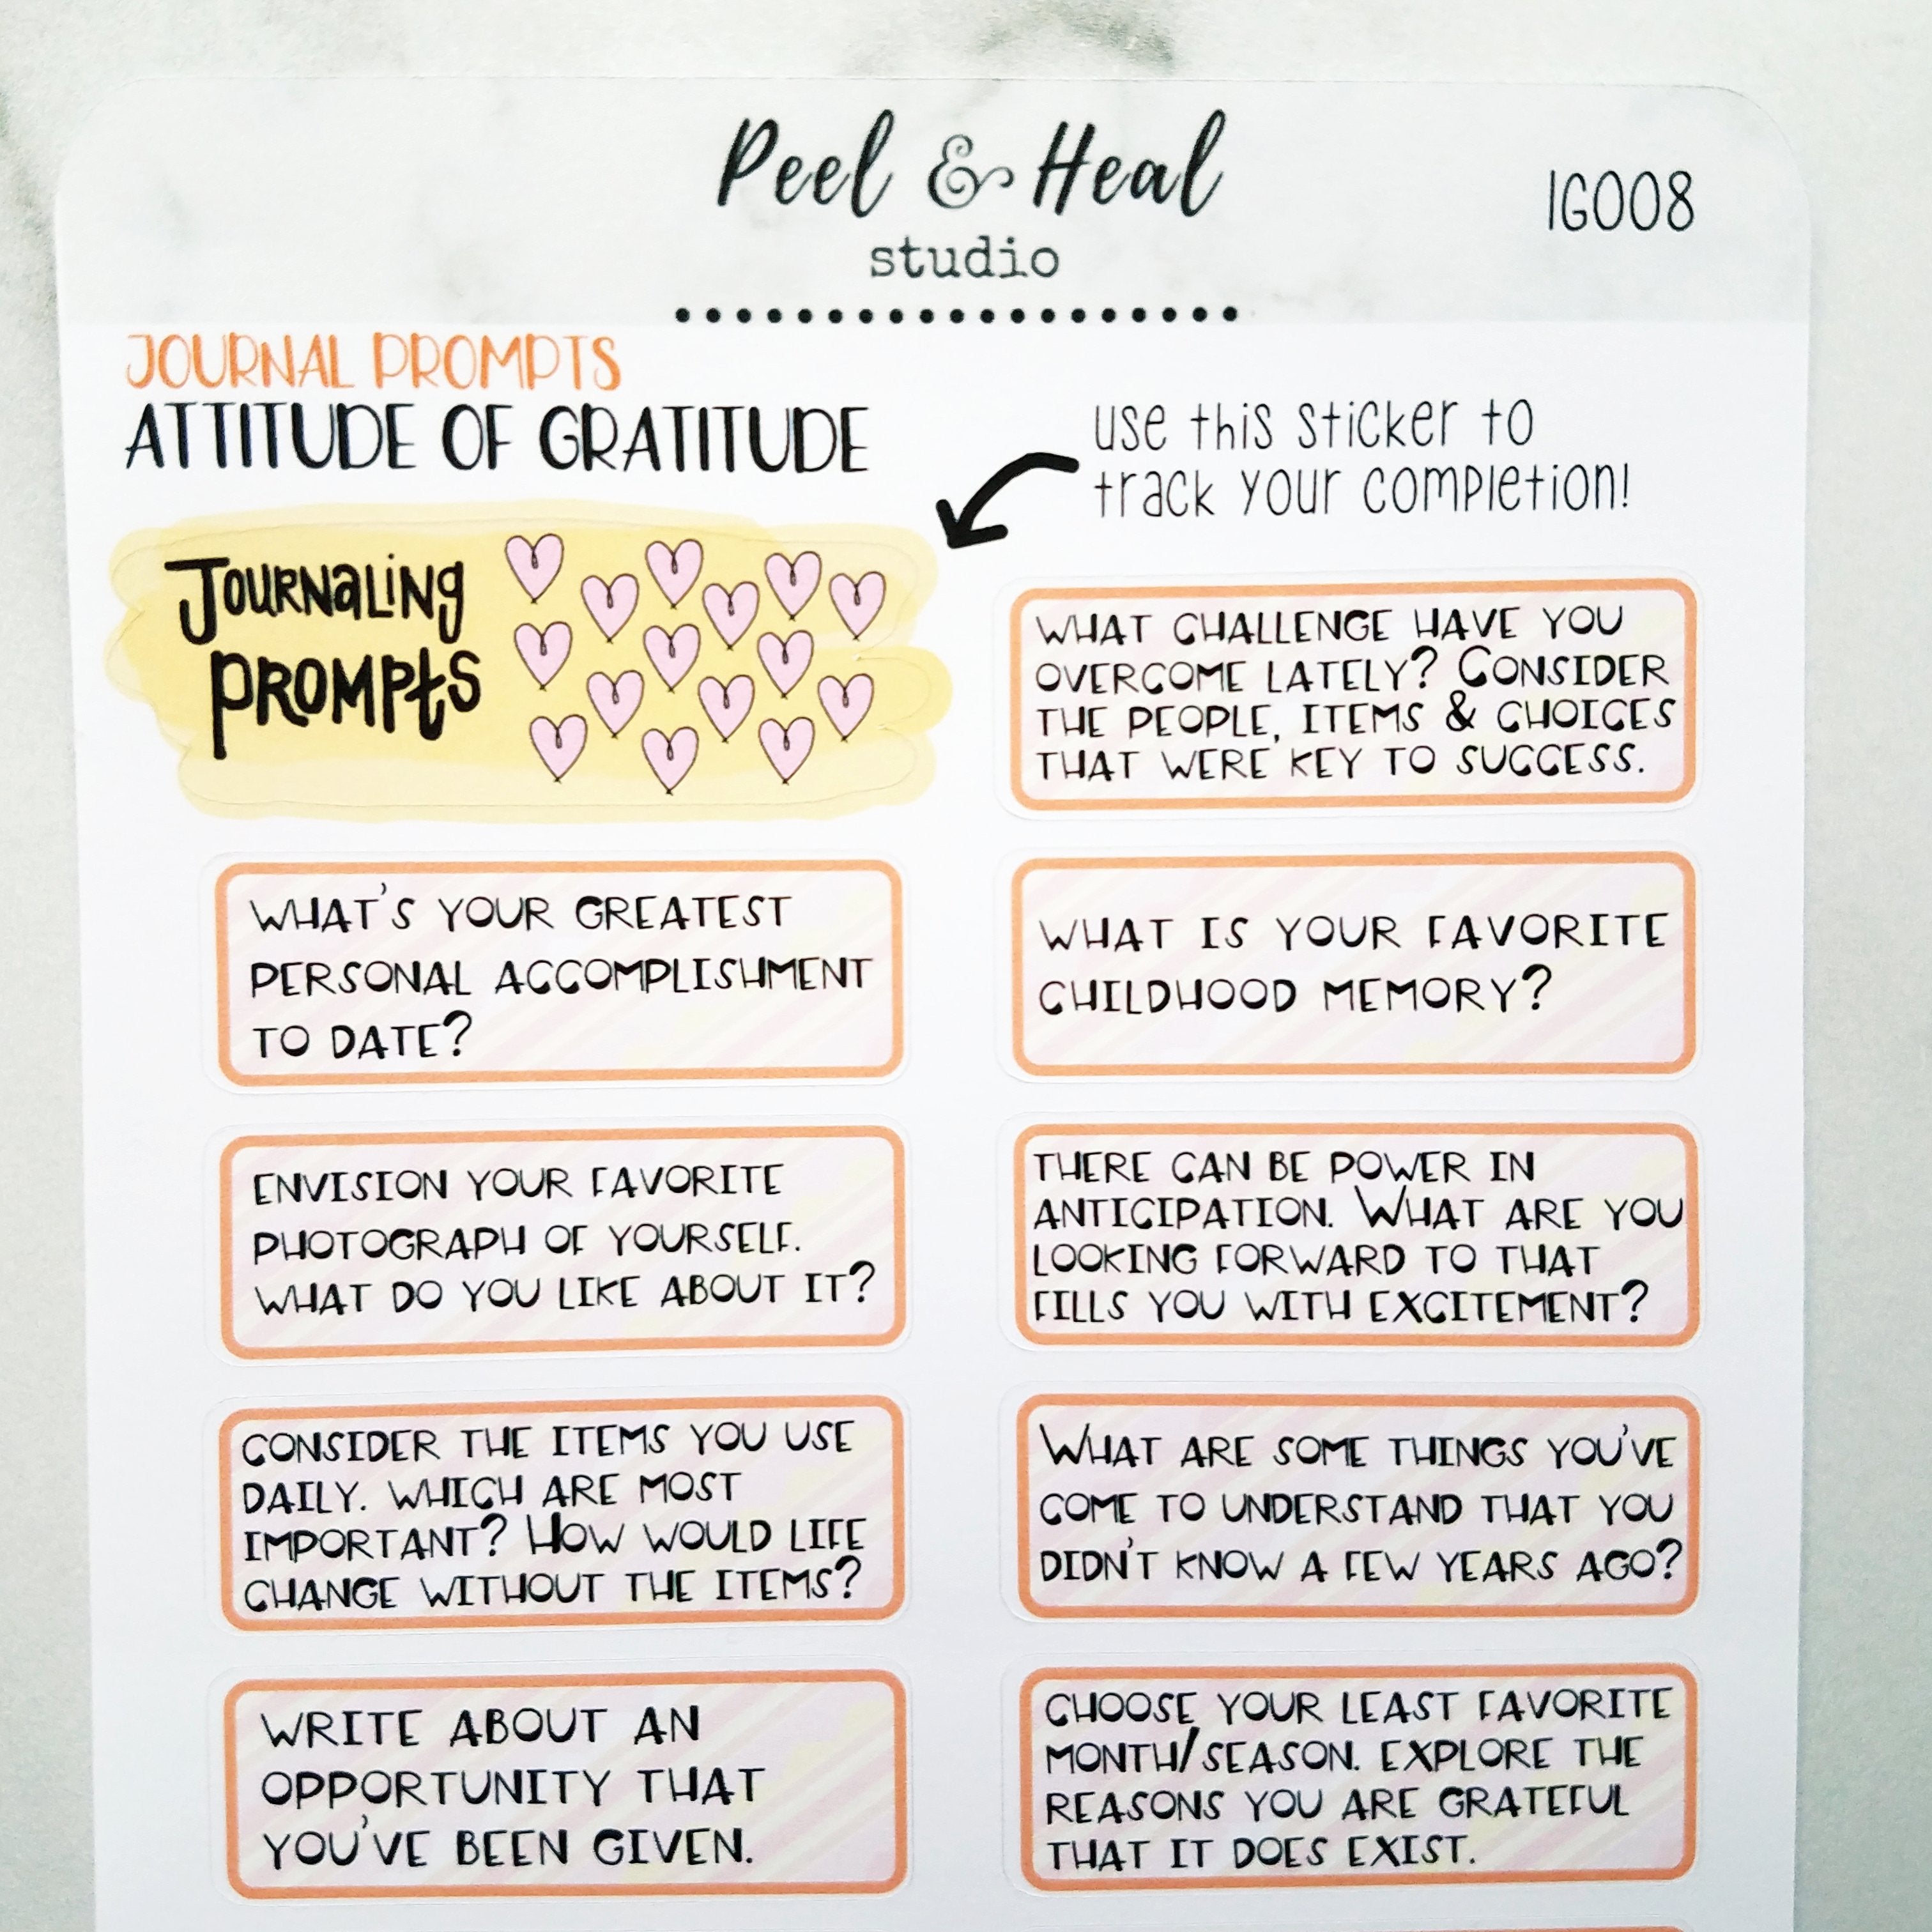 Peel & Heal
studio
IG008
JOURNAL PROMPTS
ATTITUDE OF GRATITUDE
use this sticker to
track your completion!
Journaling
Prompts
WHAT CHALLENGE HAVE YOU
OVERCOME LATELY? CONSIDER
THE PEOPLE, ITEMS & CHOICES
THAT WERE KEY TO SUCCESS.
WHAT'S YOUR GREATEST
PERSONAL ACCOMPLISHMENT
TO DATE?
WHAT IS YOUR FAVORITE
CHILDHOOD MEMORY?
ENVISION YOUR FAVORITE
PHOTOGRAPH OF YOURSELF.
WHAT DO YOU LIKE ABOUT IT?
THERE CAN BE POWER IN
ANTICIPATION. WHAT ARE YOU
LOOKING FORWARD TO THAT
FILLS YOU WITH EXCITEMENT?
CONSIDER THE ITEMS YOU USE
DAILY. WHICH ARE MOST
IMPORTANT? HOW WOULD LIFE
CHANGE WITHOUT THE ITEMS?
WHAT ARE SOME THINGS YOU'VE
COME TO UNDERSTAND THAT YOU
DIDN'T KNOW A FEW YEARS AGO?
WRITE ABOUT AN
OPPORTUNITY THAT
YOU'VE BEEN GIVEN.
CHOOSE YOUR LEAST FAVORITE
MONTH/SEASON. EXPLORE THE
REASONS YOU ARE GRATEFUL
THAT IT DOES EXIST.